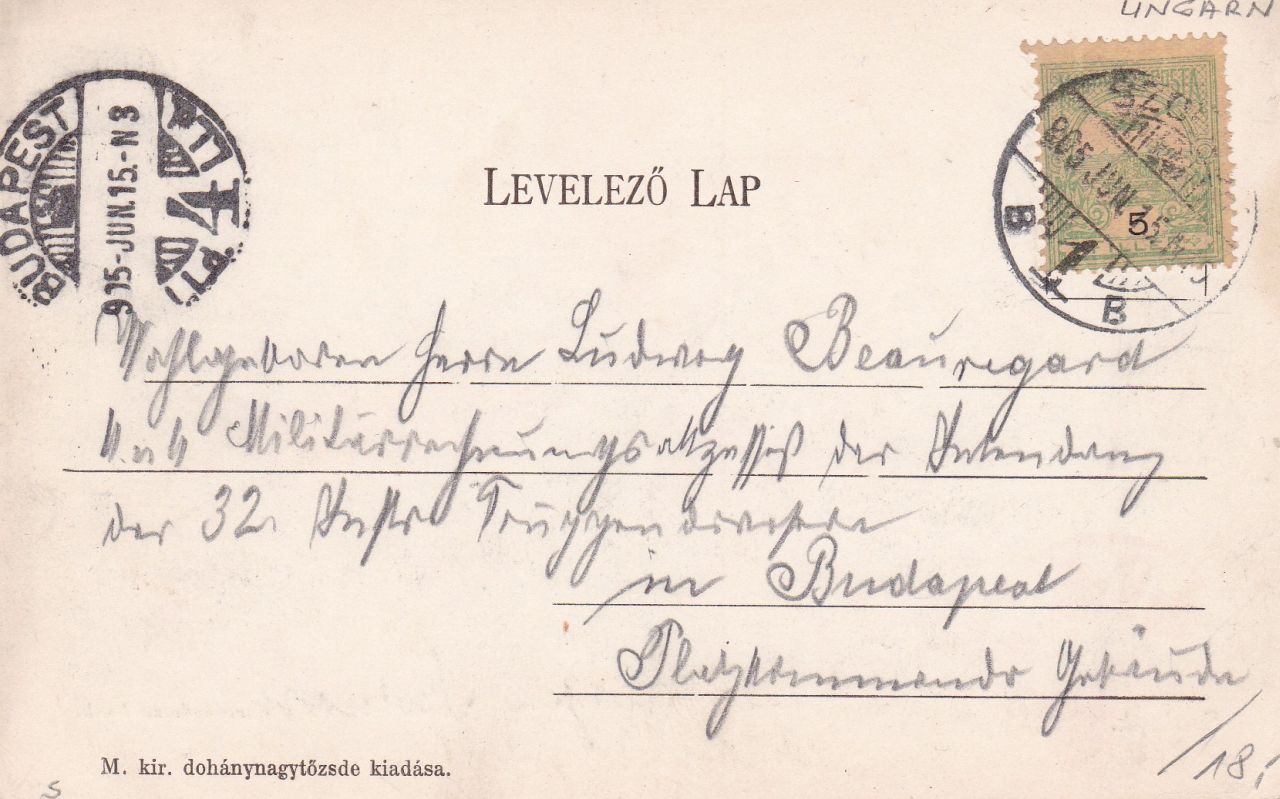 UNGARN
BUDAPEST
915-JUN.15.-N3
905 JUN. 15
5
B 1 B
LEVELEZŐ LAP
Wohlgeboren Herrn Ludwig Beauregard
k u k Militärrechnungsakzessist der Intendanz
der 32. Inftr Truppendivision
in Budapest
Platzkommando Gebäude
M. kir. dohánynagytőzsde kiadása.
18,
s